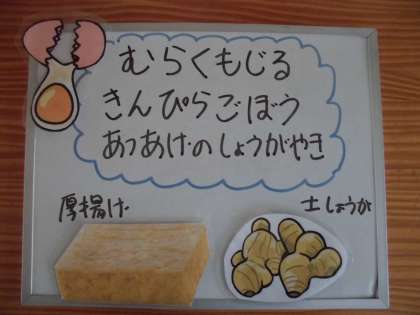 むらくもじる
きんぴらごぼう
あつあげのしょうがやき
厚揚げ
土しょうが